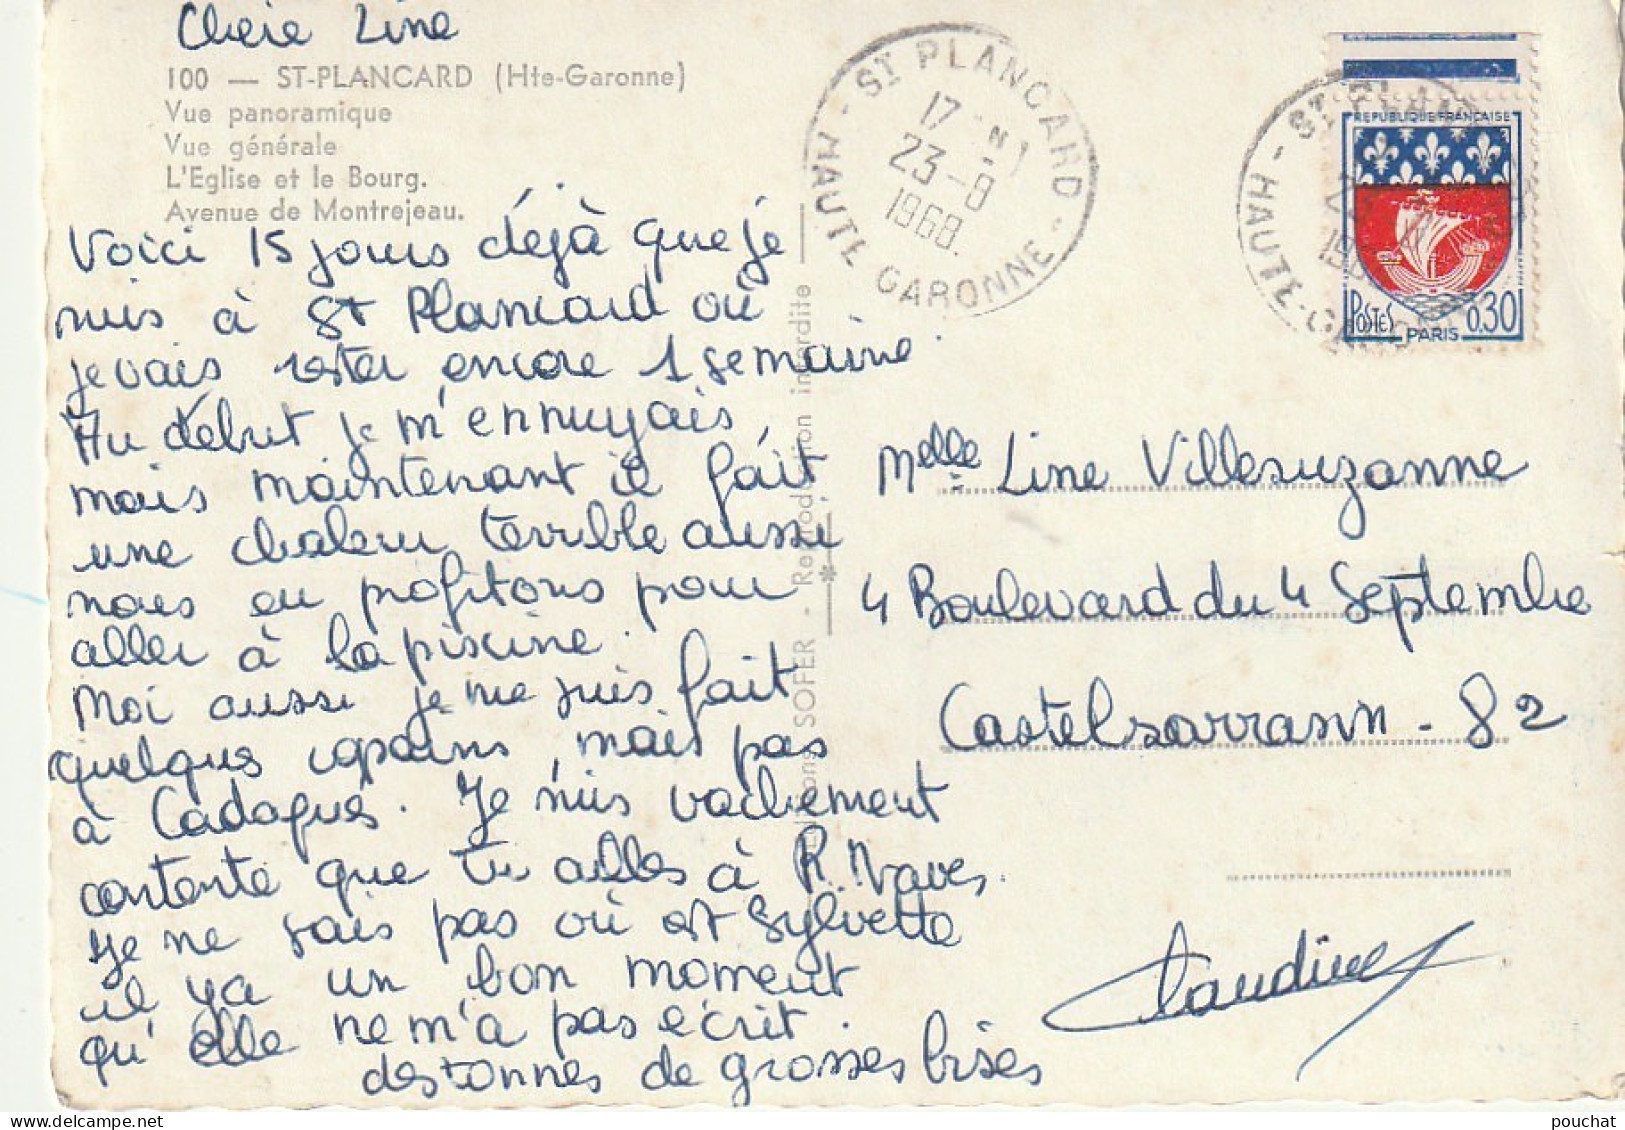 Chere Line
100 — ST-PLANCARD (Hte-Garonne)
Vue panoramique
Vue générale
L'Eglise et le Bourg.
Avenue de Montrejeau.
Voici 15 jours déjà que je
suis à St Plancard où
je vais rester encore 1 semaine.
Au début je m'ennuyais
mais maintenant il fait
une chaleur terrible aussi
nous en profitons pour
aller à la piscine.
Moi aussi je me suis fait
quelques copains, mais pas
à Cadaqués. Je suis vachement
contente que tu ailles à R. Naves.
Je ne sais pas où est Sylvette
il y a un bon moment
qu'elle ne m'a pas écrit.
des tonnes de grosses bises
Editions SOFER - Reproduction interdite
ST PLANCARD
17 H
23-8
1968.
HAUTE GARONNE
REPUBLIQUE FRANÇAISE
POSTES PARIS 0,30
HAUTE-GA
Melle Line Villesuzanne
4 Boulevard du 4 Septembre
Castelsarrasin - 82
Claudine
pouchat